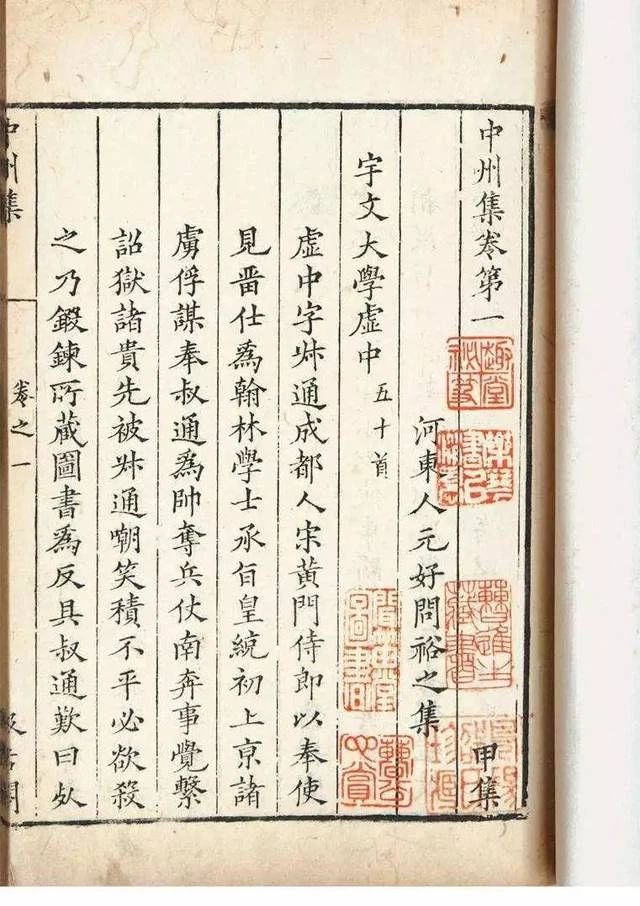 中州集卷第一 甲集
河東人元好問裕之集
宇文大學虛中 五十首
虛中字叔通成都人宋黃門侍郎以奉使
見畱仕爲翰林學士承旨皇統初上京諸
虜俘謀奉叔通爲帥奪兵仗南奔事覺繫
詔獄諸貴先被叔通嘲笑積不平必欲殺
之乃鍛鍊所藏圖書爲反具叔通歎曰死
中州集 卷之一 汲古閣